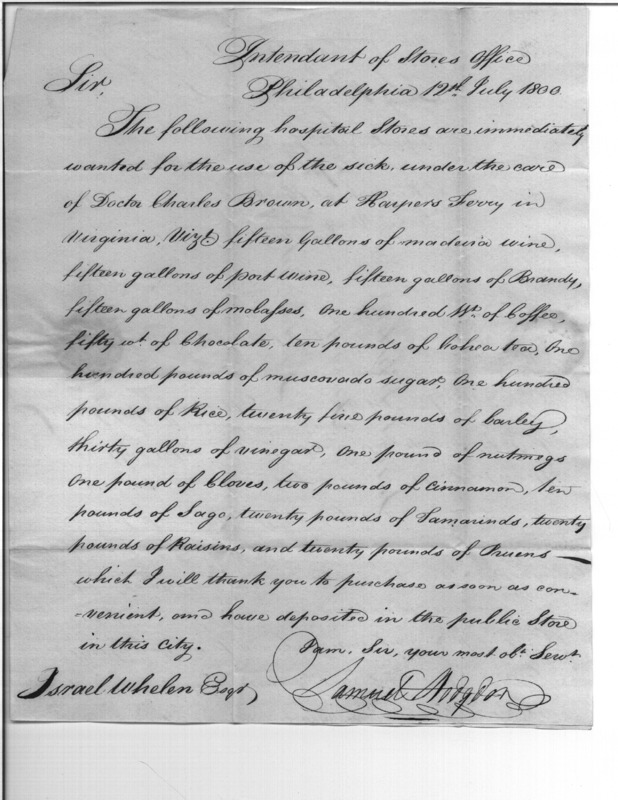 Intendant of Stores Office
Philadelphia 12th. July 1800
Sir,
The following hospital Stores are immediately
wanted for the use of the sick, under the care
of Doctor Charles Brown, at Harpers Ferry in
Virginia, Vizt. fifteen Gallons of madeira wine,
fifteen gallons of port wine, fifteen gallons of Brandy,
fifteen gallons of molasses, One hundred Wt. of Coffee,
fifty wt. of Chocolate, ten pounds of bohea tea, One
hundred pounds of muscovado sugar, One hundred
pounds of Rice, twenty five pounds of barley,
thirty gallons of vinegar, One pound of nutmegs
One pound of Cloves, two pounds of Cinnamon, ten
pounds of Sago, twenty pounds of Tamarinds, twenty
pounds of Raisins, and twenty pounds of Pruens —
which I will thank you to purchase as soon as con-
-venient, and have deposited in the public Store
in this City.
I am, Sir, your most obt. Servt.
Israel Whelen Esqr.
Samuel Hodgdon